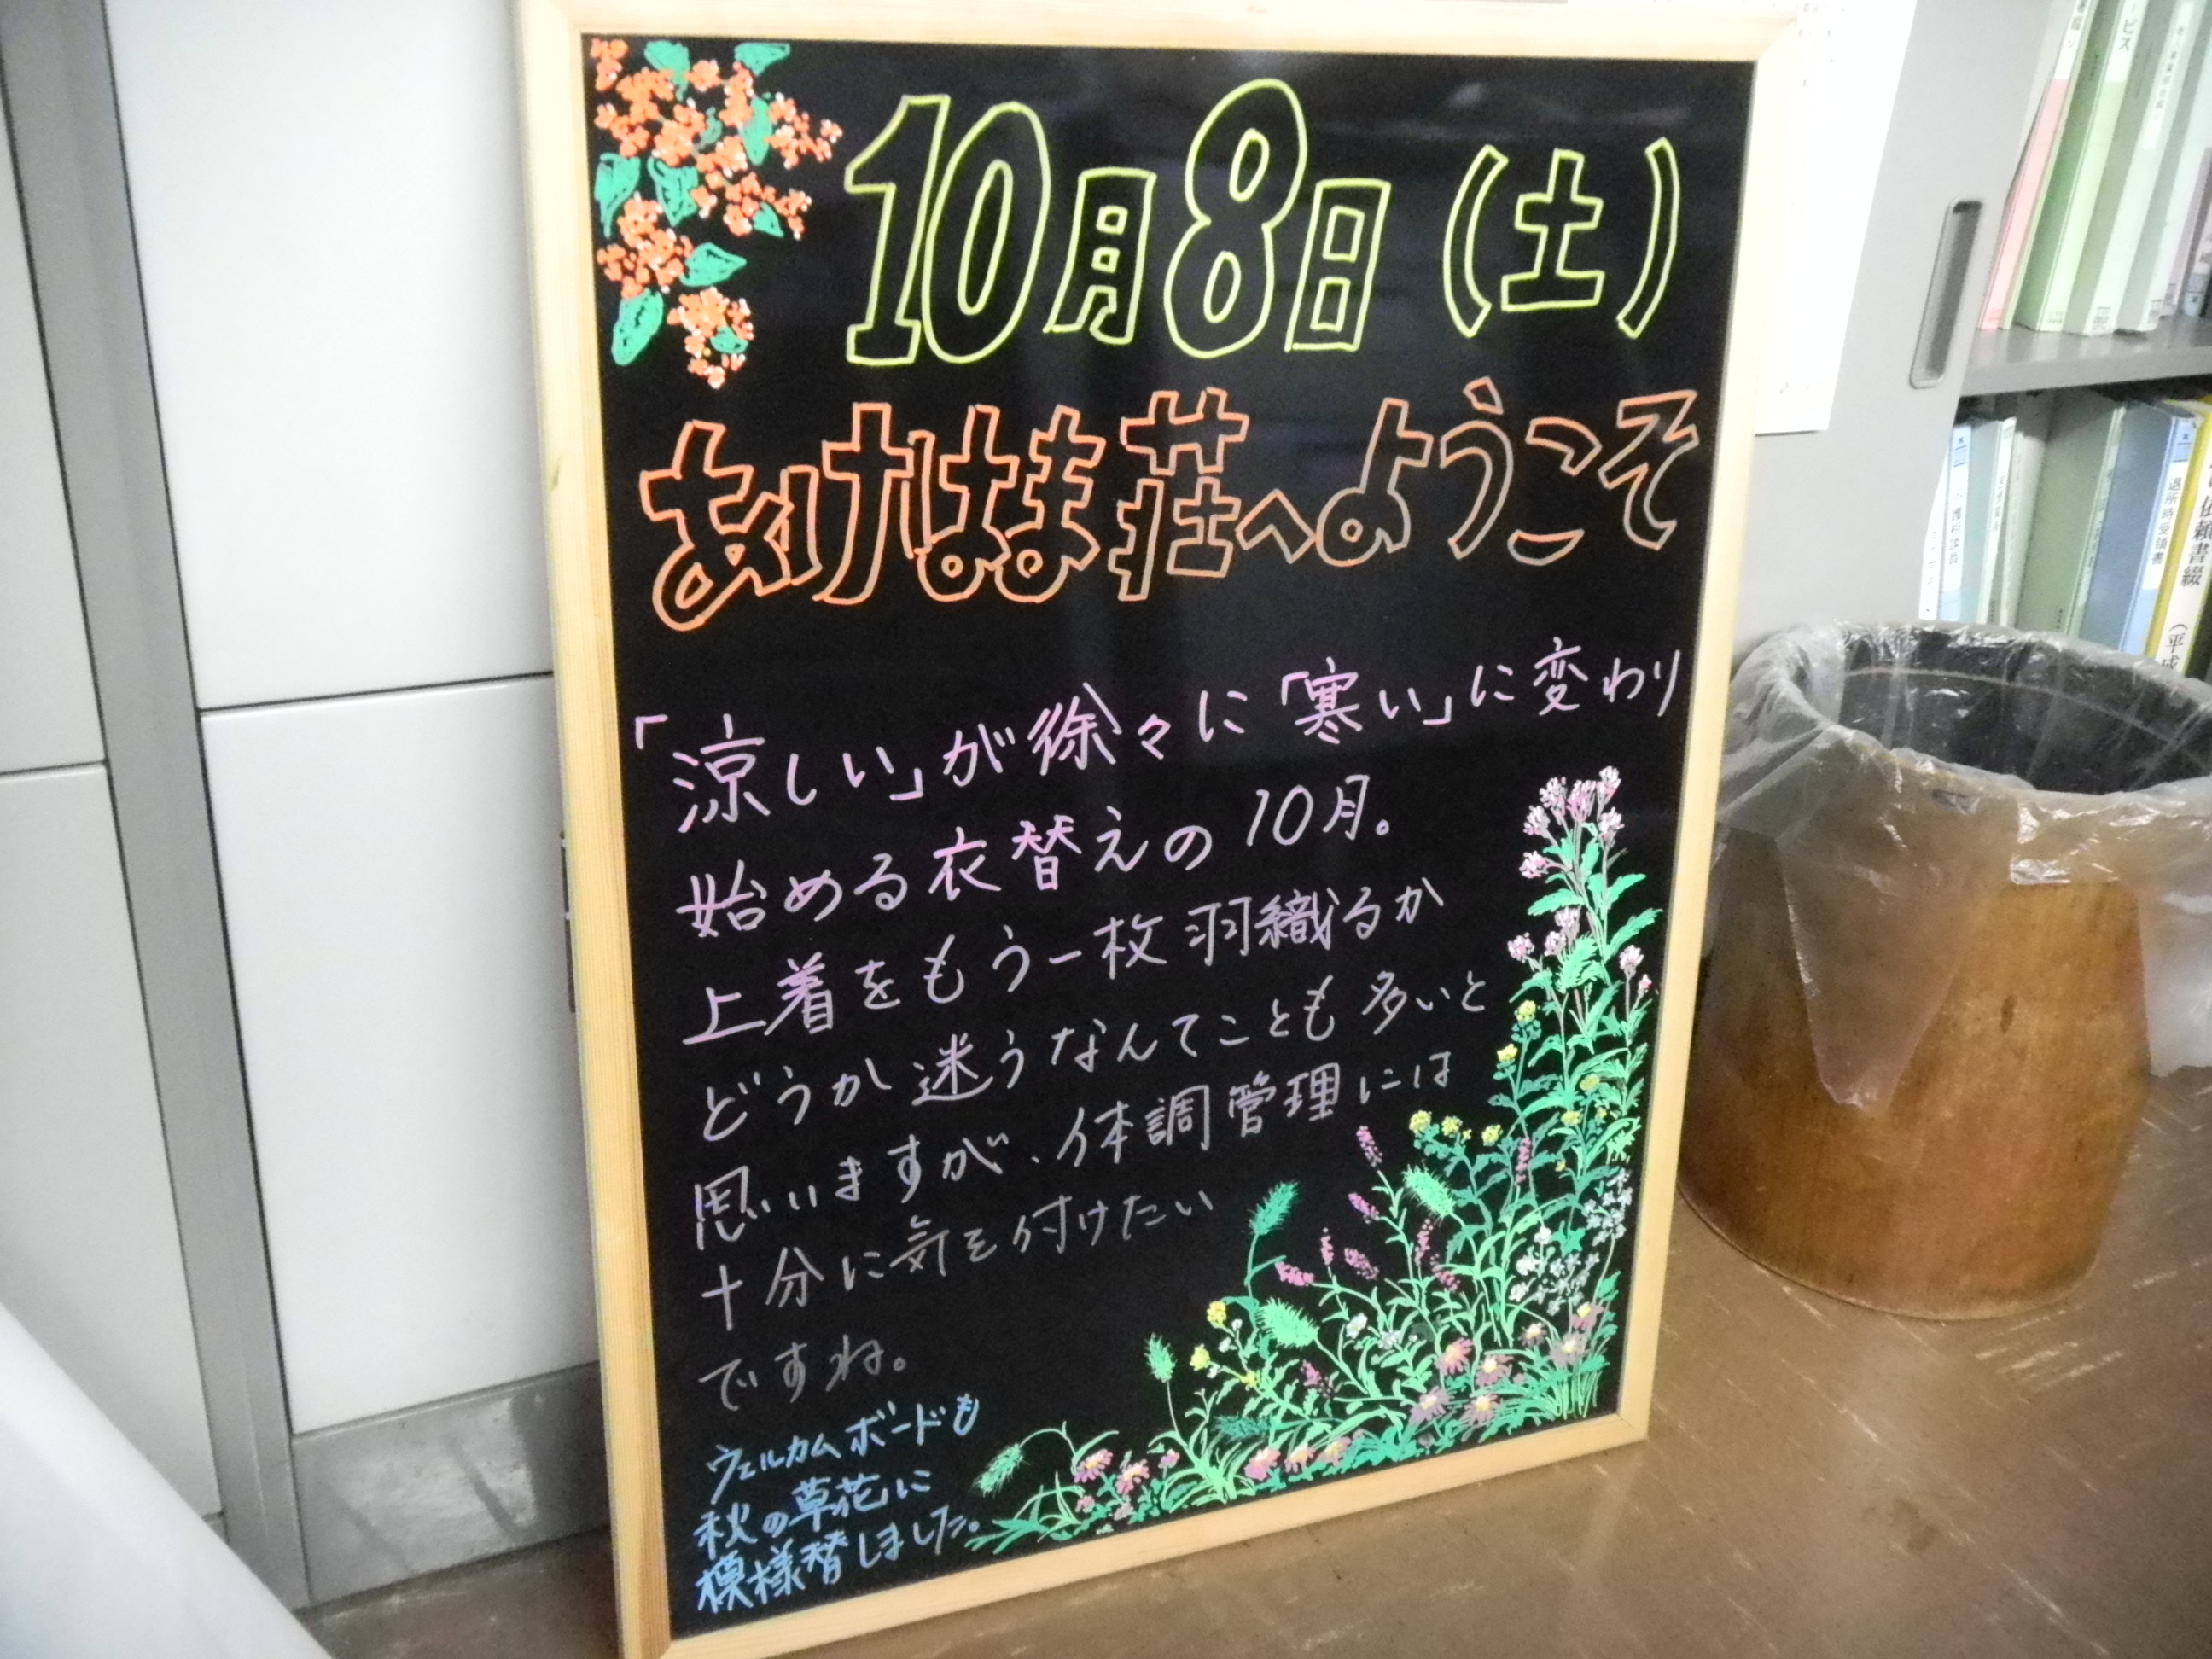 10月8日(土)
あけはま荘へようこそ
「涼しい」が徐々に「寒い」に変わり
始める衣替えの10月。
上着をもう一枚羽織るか
どうか迷うなんてことも多いと
思いますが、体調管理には
十分に気を付けたい
ですね。
ウェルカムボードも
秋の草花に
模様替しました。
退所時受領書
依頼書綴
(平成